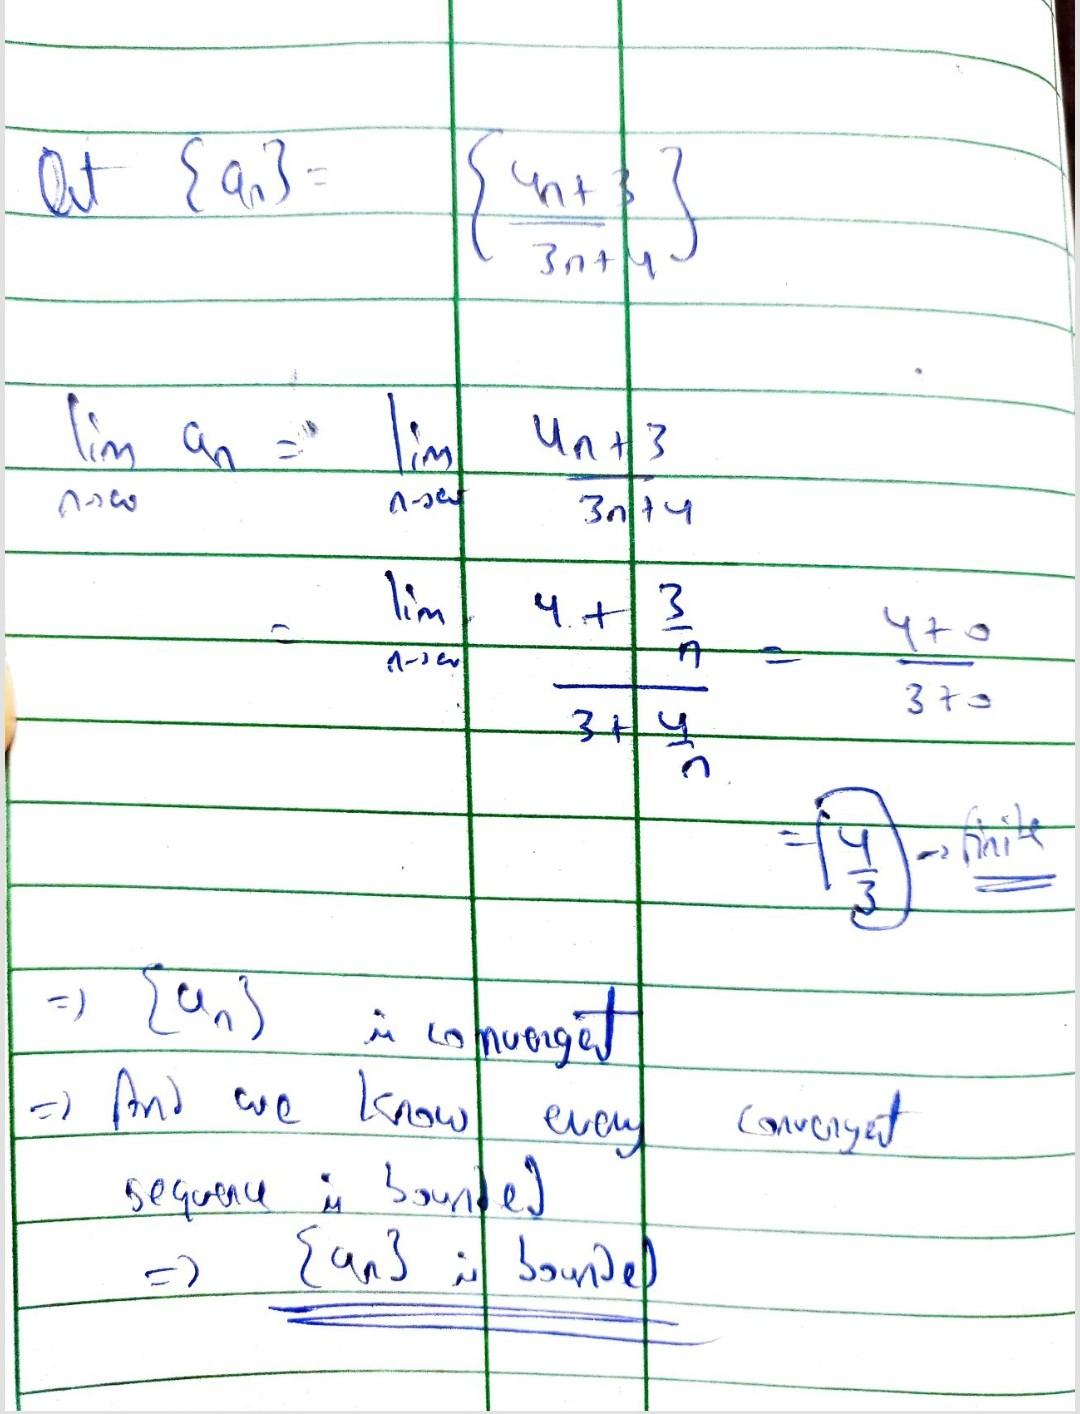 {an} = {4n+3 / 3n+4}
lim n→∞ an = lim n→∞ 4n+3 / 3n+4
= lim n→∞ 4 + 3/n / 3 + 4/n = 4+0 / 3+0
= 4/3 → finite
=> {an} is convergent
=> And we know every convergent
sequence is bounded
=> {an} is bounded